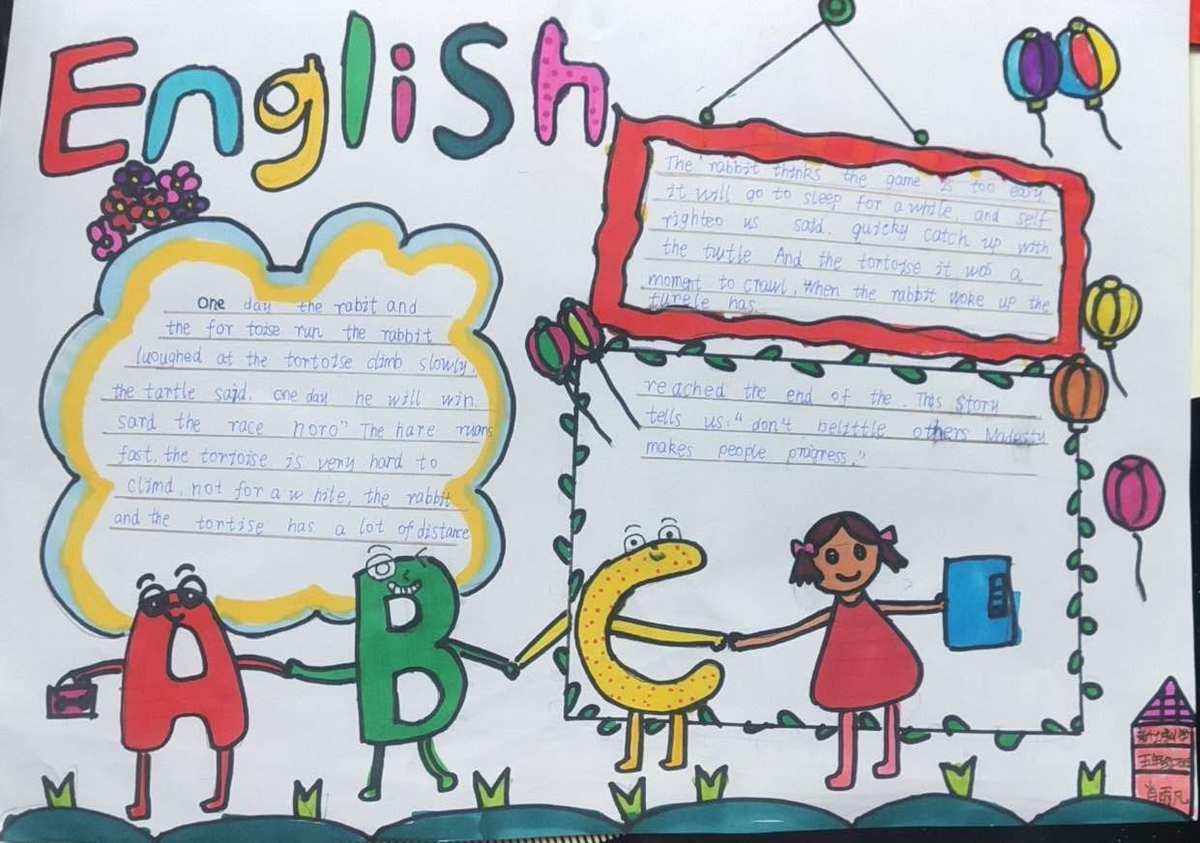 English
One day the rabit and
the for toise run the rabbit
luoughed at the tortoise climb slowly.
the tartle said. one day he will win.
sard the race noro" The hare ruans
fast, the tortoise is very hard to
climd, not for a w hile, the rabbit
and the tortise has a lot of distance
The rabbit thinks the game is too easy
it will go to sleep for a while, and self
righteo us said, quicky catch up with
the turtle And the tortoise it was a
moment to crawl, when the rabbit woke up the
turele has
reached the end of the. This Story
tells us: "don't belittle others Madesty
makes people progress."
A B C
五年级一班
肖雨凡